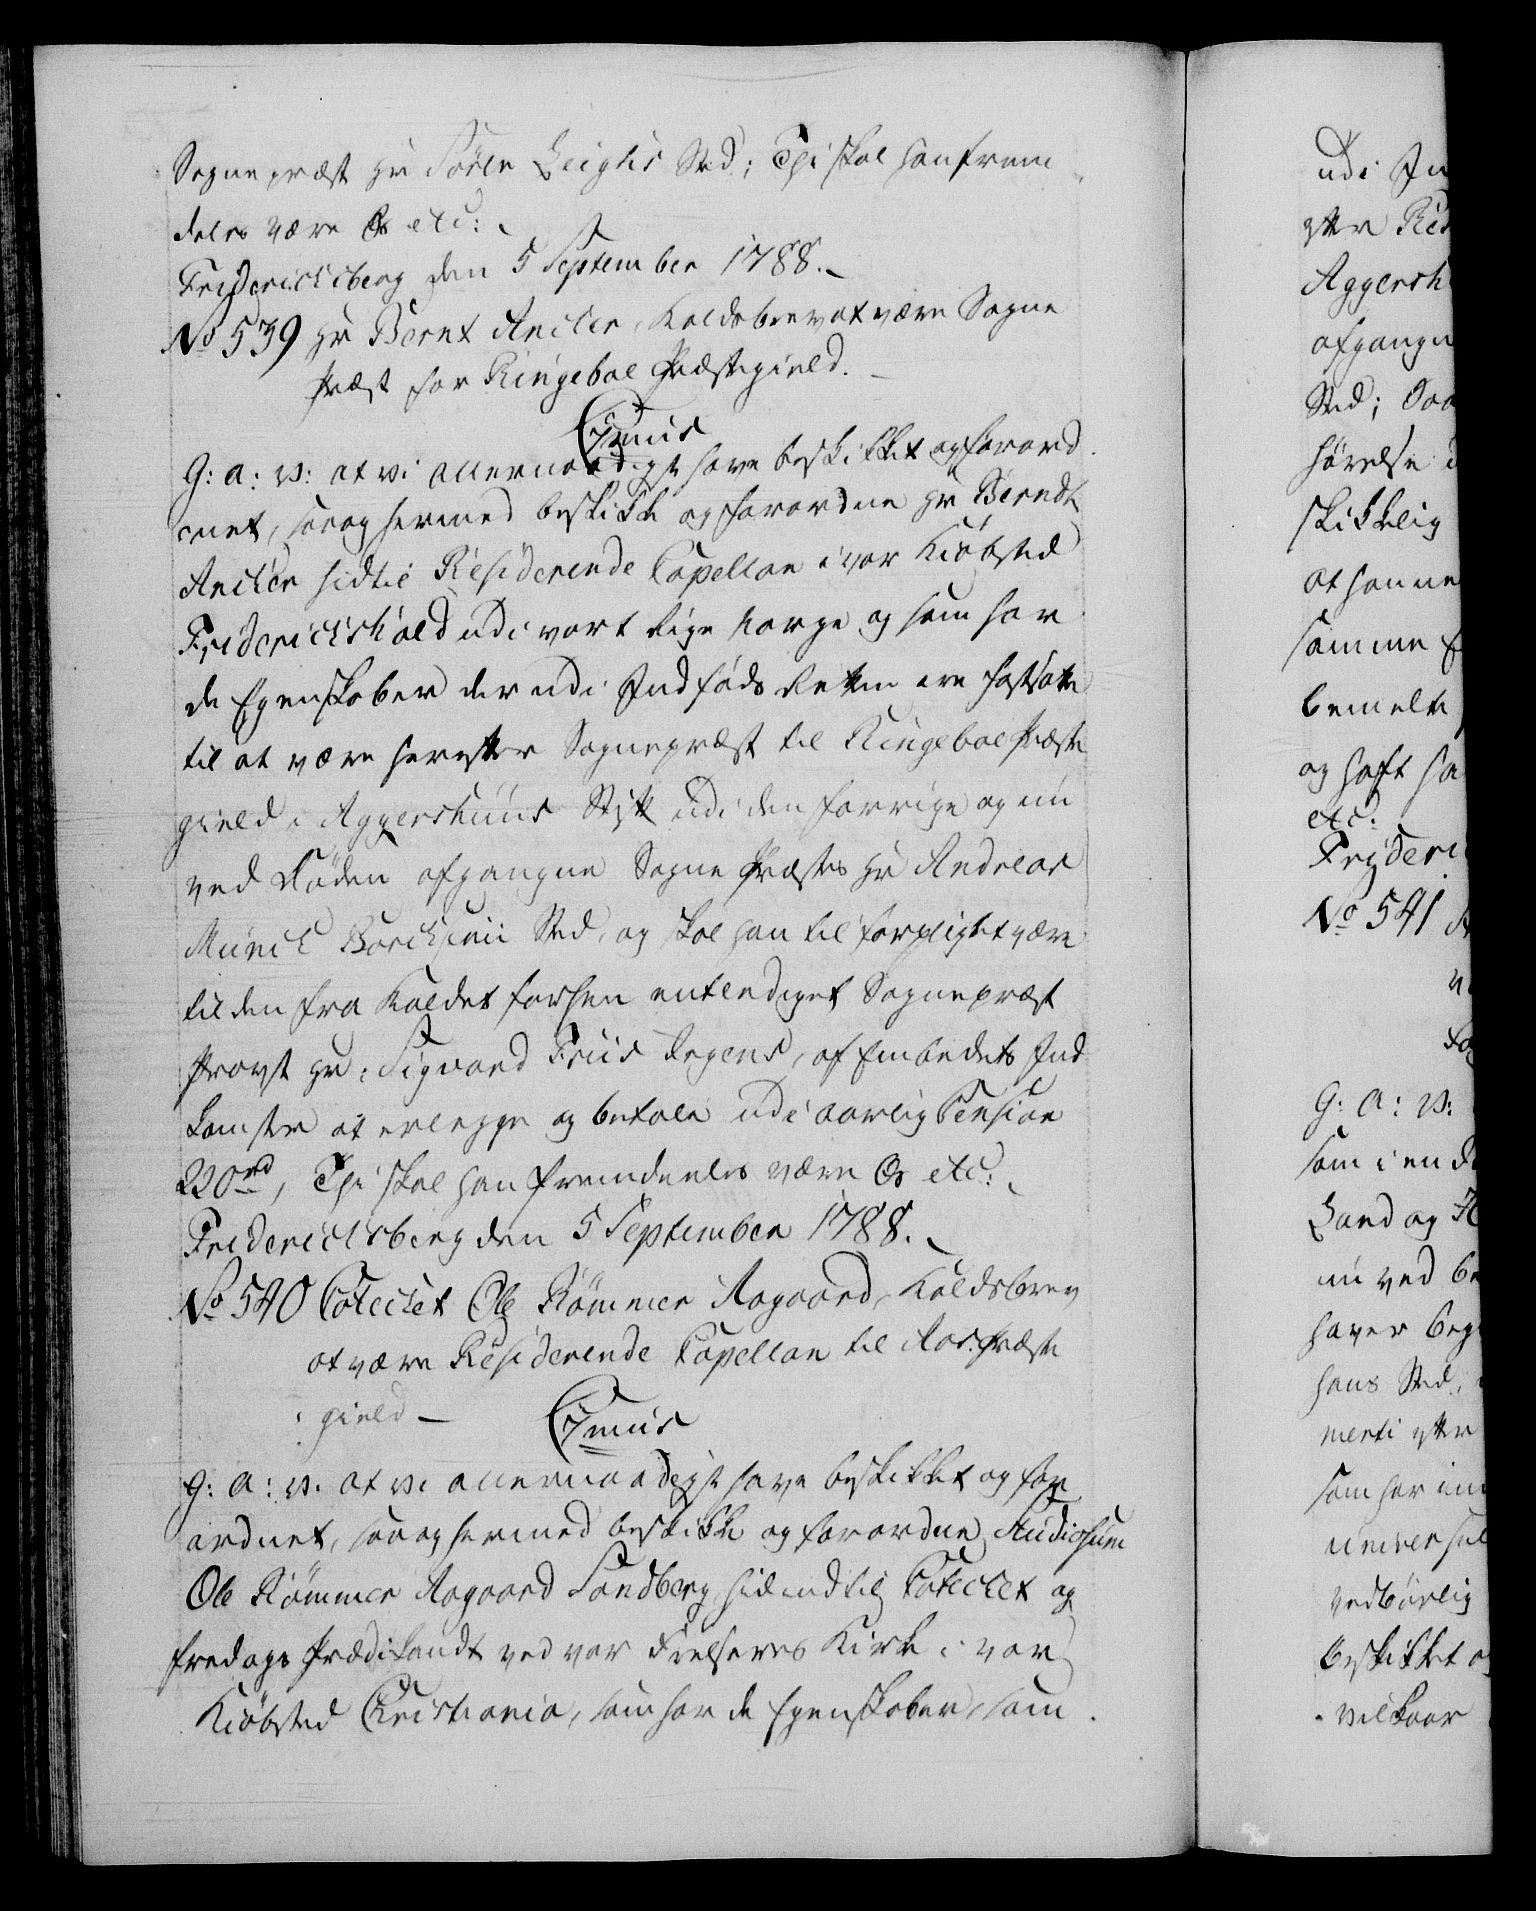 Sognepræst Hr Sören Leighs Sted; Thi skal han frem
deles være Os etc:
Friderichsberg den 5 September 1788.
No 539 Hr Bernt Ancher, Kaldsbrev at være Sogne
Præst for Ringeboe Præstegield.
C7mus
G: A: V: at Vi allernaadigst have beskikket og forord
net, saa og hermed beskikke og forordne Hr Berndt
Ancher hidtil Residerende Capellan i vor Kiöbsted
Friderichshald udi vort Rige Norge og som har
de Egenskaber der udi Indföds Retten ere fastsatte
til at være herefter Sognepræst til Ringeboe Præste
gield i Aggershuus Stift udi den forrige og nu
ved Döden afgangne Sogne Præstes Hr Andreas
Munch Sted, og skal han til forpligtet være
til den fra Kaldet forhen entlediget Sognepræst
Provst Hr: Sigvard Friis Regens, af Embedets Ind
komster at erlegge og betale udi aarlig Pension
220rd, Thi skal han fremdeeles være Os etc:
Friderichsberg den 5 September 1788.
No 540 Catechet Ole Römmer Aagaard, Kaldsbrev
at være Residerende Capellan til Aas Præste
gield
C7mus
G: A: V: at Vi allernaadigst have beskikket og for
ordnet, saa og hermed beskikke og forordne Studiosum
Ole Römmer Aagaard Sandberg hidindtil Catechet og
fredags Prædikandt ved vor Frelseres Kirke i vor
Kiöbsted Christiania, som har de Egenskaber, som
udi
Aggersh
afgangn
Sted;
hörelse
skikkelig
at han
samme
bemelte
og haft ha
etc:
Frideri
No 541
G: A: V:
som i en
Land og
nu ved
haver
hans Sted,
som har
vedbörlig
beskikket
vilkaar